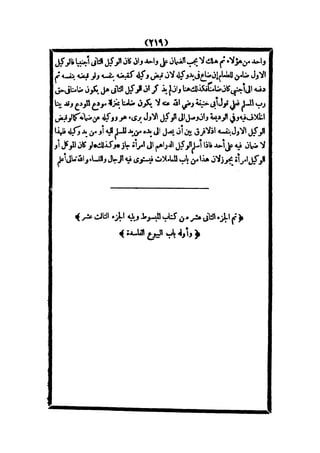 (٢١٩)
واحد من هؤلاء ثم هلك لا يجب الضمان على واحد وان كان الوكيل الثاني أجنبيا فالوكيل
الاول ضامن للطعام ان ضاع في يد وكيله لان قبض وكيله كقبضه بنفسه ولو قبضه بنفسه ثم
دفعه الى أجنبي كان ضامنا فكذلك هنا ولم يذكر ان الوكيل الثاني هل يكون ضامنا في حق
رب السلم فعلى قول أبي حنيفة رضي الله عنه لا يكون ضامنا بمنزلة مودع المودع وقد بينا
الخلاف فيه في الوديعة وان وصل الى الوكيل الاول برىء هو ووكيله عن ضمانه كما لو قبض
الوكيل الاول بنفسه اذ لا فرق بين أن يصل الى يده من يد المسلم اليه أو من يد وكيله فلهذا
لا ضمان فيه على أحد فاذا أسلم الوكيل الدراهم الى امرأة جاز وكذلك لو كان الموكل أو
الوكيل امرأة يجوز لان هذا من باب المعاملات فيستوى فيه الرجال والنساء والله تعالى أعلم
﴿ تم الجزء الثاني عشر من كتاب المبسوط ويليه الجزء الثالث عشر ﴾
﴿ وأوله باب البيوع الفاسدة ﴾